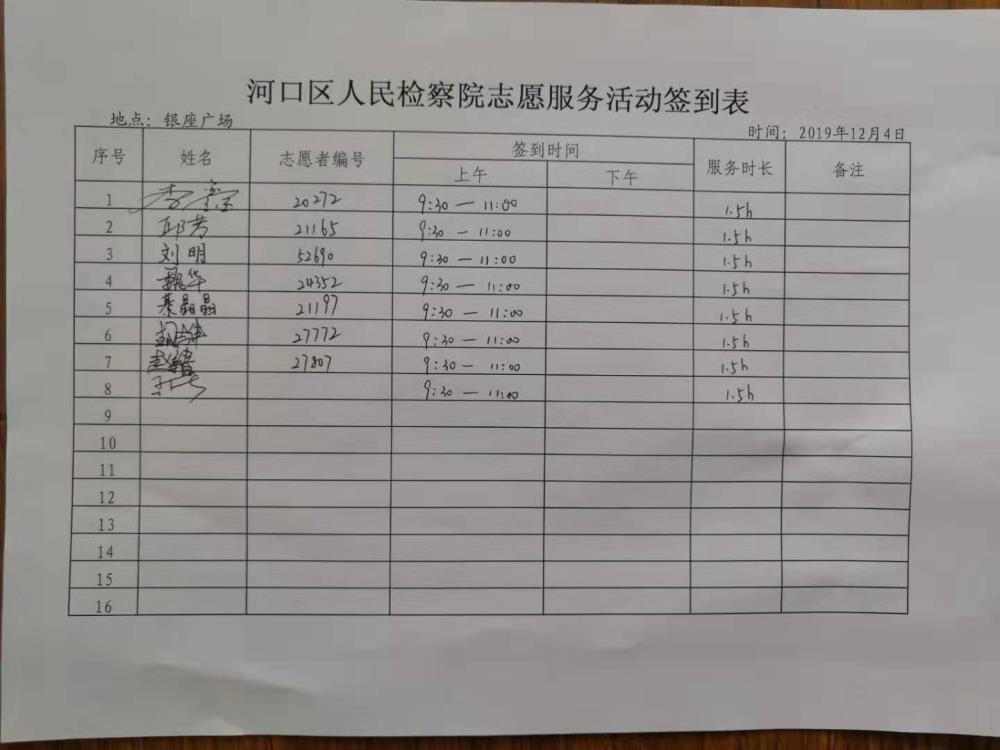 河口区人民检察院志愿服务活动签到表
地点：银座广场
时间：2019年12月4日
序号 姓名 志愿者编号 签到时间 服务时长 备注
上午 下午
1 李 20272 9:30 — 11:00 1.5h
2 邱芳 21165 9:30 — 11:00 1.5h
3 刘明 52690 9:30 — 11:00 1.5h
4 魏华 24352 9:30 — 11:00 1.5h
5 綦晶晶 21197 9:30 — 11:00 1.5h
6 27772 9:30 — 11:00 1.5h
7 27807 9:30 — 11:00 1.5h
8 9:30 — 11:00 1.5h
9
10
11
12
13
14
15
16